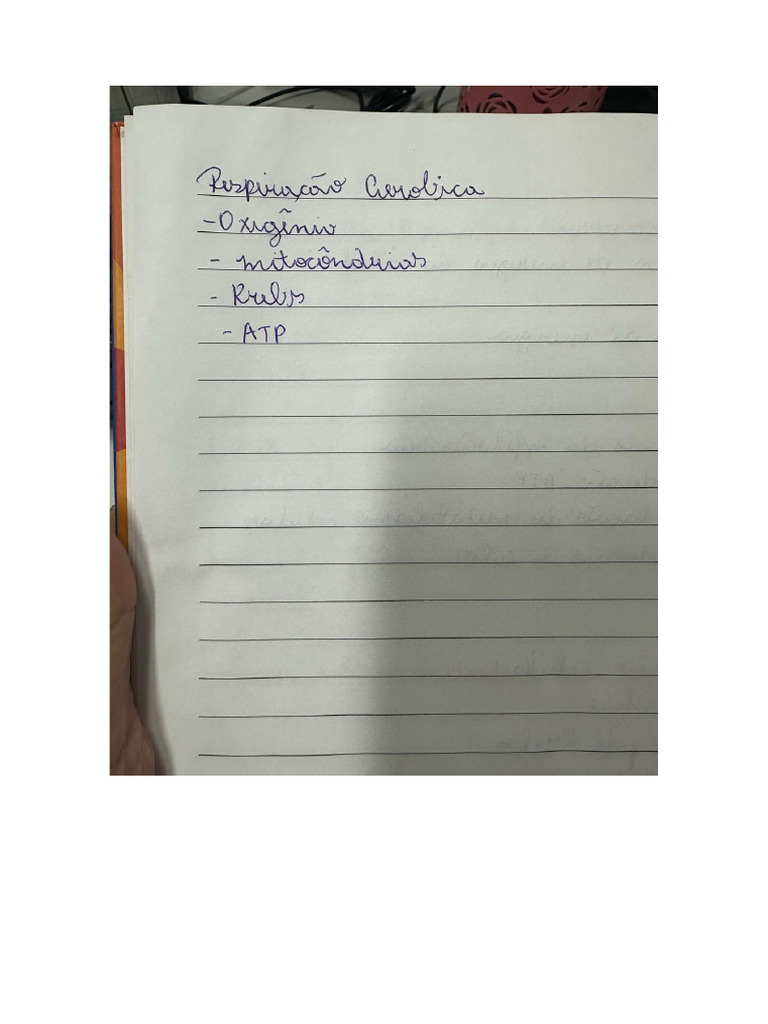 Respiração Aerobica
- Oxigênio
- mitocôndrias
- Krebs
- ATP